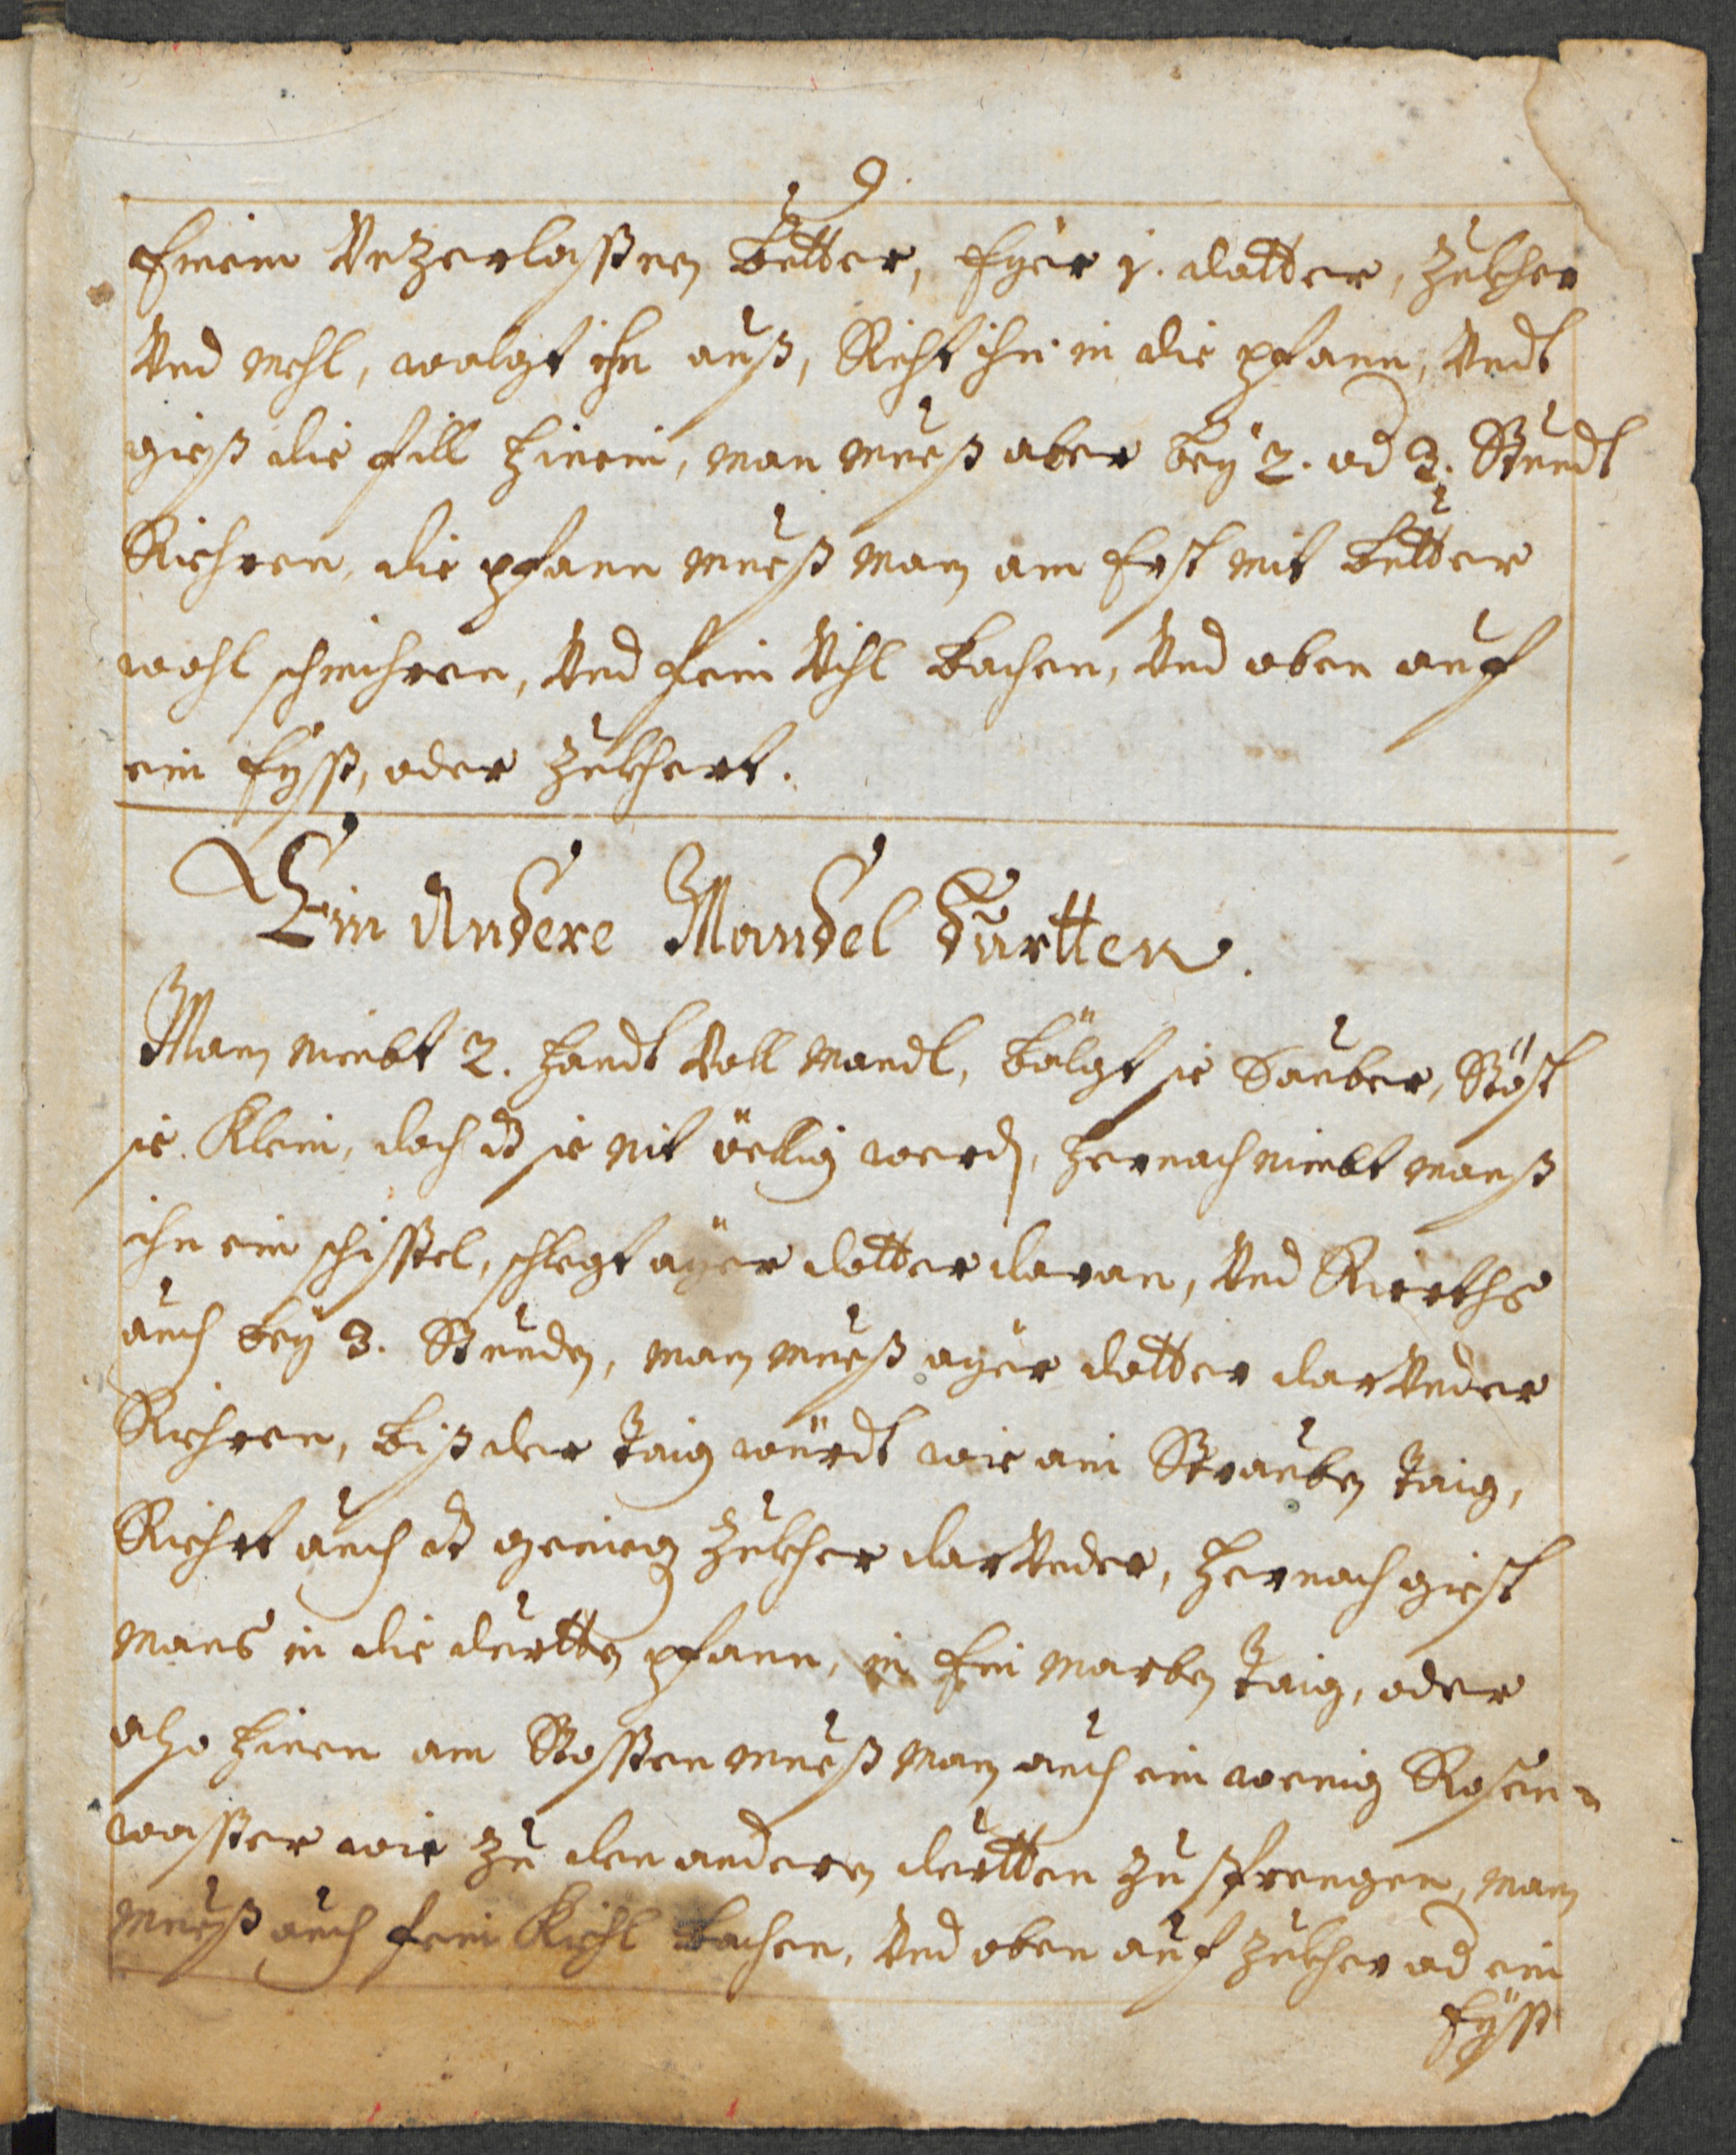 9.
Einem Vnzerlaßnen Butter, Eyer j. dotter, Zukher
Vnd mehl, walgt ihn auß, Richt ihn in die pfann, Vndt
gieß die fill hinein, man mueß aber beÿ 2. od 3. Stundt
Riehren, die pfann mueß man am Erst mit Butter
wohl schmihren, Vnd fein Kihl bachen, Vnd oben auf
ein Eyß, oder Zukhert.
Ein Andere Mandel Turtten.
Man nimbt 2. handt Voll mandl, bälgt sie Sauber, Stöst
sie Klein, doch dß sie nit öellig werdn, hernach nimbt manß
ihn ein schissel, schlegt aÿer dotter daran, Vnd Rierths
auch beÿ 3. Stundn, man mueß aÿer dotter darVnder
Riehren, biß der Taig würdt wie ain Strauben Taig,
Riehrt auch dß genueg Zukher darVnder, hernach giest
mans in die durtten pfann, in Ein marben Taig, oder
also hinen am Stossen mueß man auch ein wenig Rosen=
wasser wie zu den anderen durtten zu sprengen, man
mueß auch fein Kiehl bachen, Vnd oben auf Zukher od ein
Eÿß